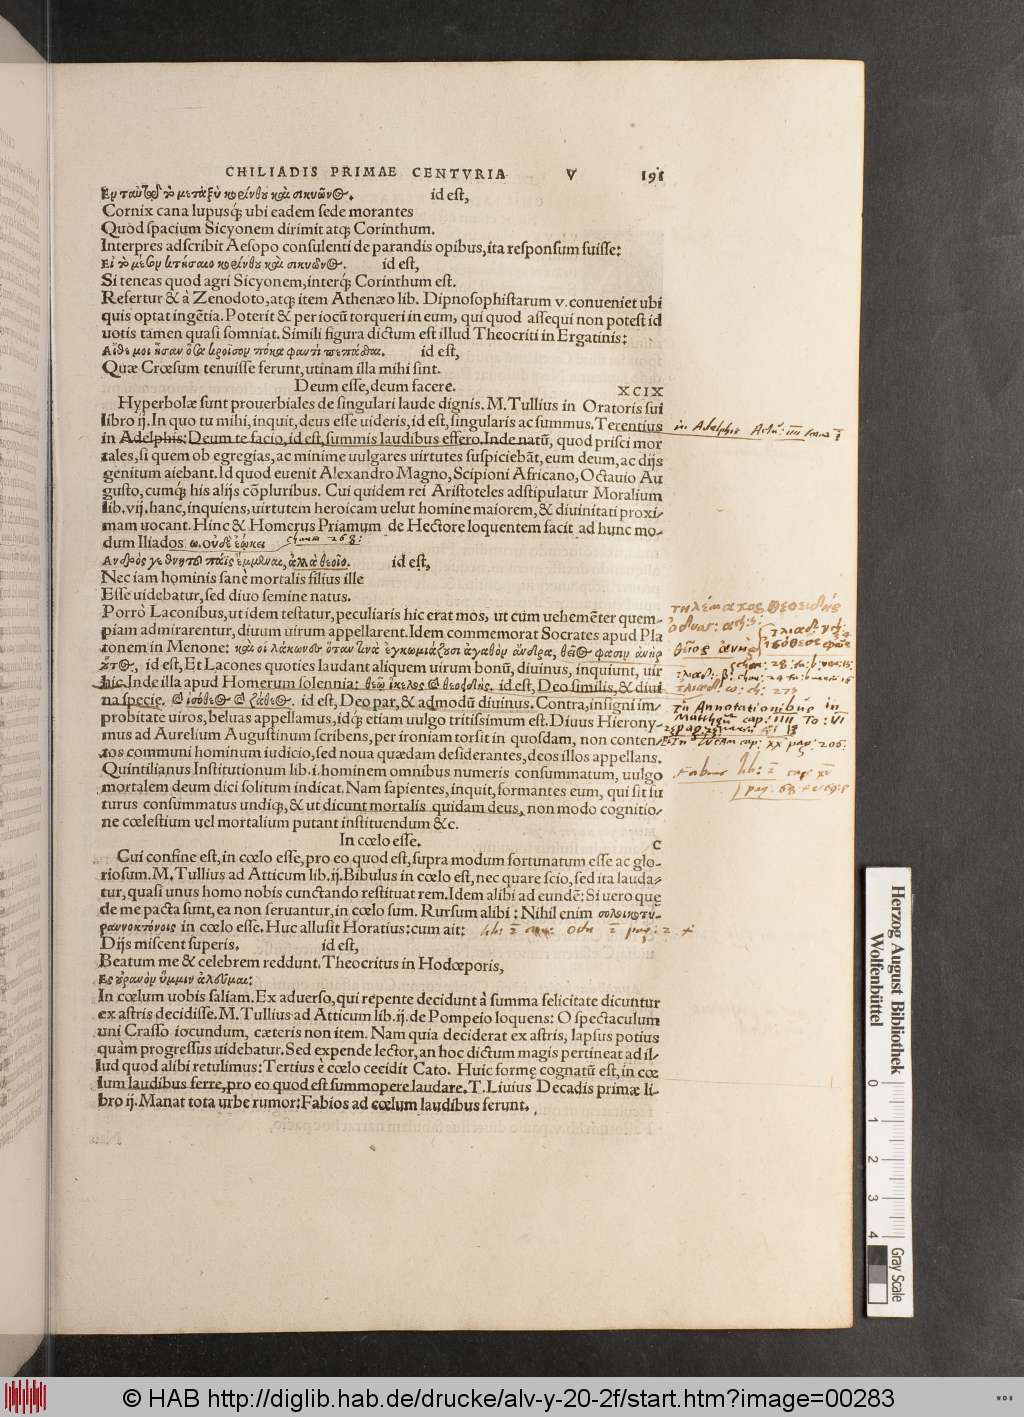 CHILIADIS PRIMAE CENTVRIA V 191
id est,
Cornix cana lupusq́; ubi eadem sede morantes
Quòd spacium Sicyonem dirimit atq; Corinthum.
Interpres adscribit Aesopo consulenti de parandis opibus, ita responsum fuisse:
Εἰ τὸ μέσον κτήσαιο κορίνθου καὶ σικυῶνος. id est,
Si teneas quod agri Sicyonem, interq́; Corinthum est.
Refertur & à Zenodoto, atq; item Athenæo lib. Dipnosophistarum v. conueniet ubi
quis optat ingẽtia. Poterit & per iocũ torqueri in eum, qui quod assequi non potest id
uotis tamen quasi somniat. Simili figura dictum est illud Theocriti in Ergatinis:
Αἴθε μοι ἦσαν ὅσα κροῖσον πόκα φαντὶ πεπᾶσθαι. id est,
Quæ Crœsum tenuisse ferunt, utinam illa mihi sint.
Deum esse, deum facere. XCIX
Hyperbolæ sunt prouerbiales de singulari laude dignis. M. Tullius in Oratoris sui
libro ij. In quo tu mihi, inquit, deus esse uideris, id est, singularis ac summus. Terentius
in Adelphis: Deum te facio, id est, summis laudibus effero. Inde natũ, quod prisci mor
tales, si quem ob egregias, ac minime uulgares uirtutes suspiciebãt, eum deum, ac dijs
genitum aiebant. Id quod euenit Alexandro Magno, Scipioni Africano, Octauio Au
gusto, cumq́; his alijs cõpluribus. Cui quidem rei Aristoteles adstipulatur Moralium
lib. vij. hanc, inquiens, uirtutem heroicam uelut homine maiorem, & diuinitati proxi-
mam uocant. Hinc & Homerus Priamum de Hectore loquentem facit ad hunc mo-
dum Iliados ω. οὐδὲ ἐῴκει
Ἀνδρός γε θνητοῦ πάϊς ἔμμεναι, ἀλλὰ θεοῖο. id est,
Nec iam hominis sanè mortalis filius ille
Esse uidebatur, sed diuo semine natus.
Porrò Laconibus, ut idem testatur, peculiaris hic erat mos, ut cùm uehemẽter quem-
piam admirarentur, diuum uirum appellarent. Idem commemorat Socrates apud Pla
tonem in Menone: καὶ οἱ λάκωνες ὅταν τινὰ ἐγκωμιάζωσι ἀγαθὸν ἄνδρα, θεῖος φασὶν ἀνὴρ
οὗτος, id est, Et Lacones quoties laudant aliquem uirum bonũ, diuinus, inquiunt, uir
hic. Inde illa apud Homerum solennia: θεῷ ἴκελος & θεοειδής. id est, Deo similis, & diui
na specie. & ἰσόθεος & ζάθεος. id est, Deo par, & admodũ diuinus. Contra, insigni im-
probitate uiros, beluas appellamus, idq́; etiam uulgo tritissimum est. Diuus Hierony-
mus ad Aurelium Augustinum scribens, per ironiam torsit in quosdam, non conten-
tos communi hominum iudicio, sed noua quædam desiderantes, deos illos appellans.
Quintilianus Institutionum lib. i. hominem omnibus numeris consummatum, uulgo
mortalem deum dici solitum indicat. Nam sapientes, inquit, formantes eum, qui sit fu
turus consummatus undiq;, & ut dicunt mortalis quidam deus, non modo cognitio-
ne cœlestium uel mortalium putant instituendum &c.
In cœlo esse. C
Cui confine est, in cœlo esse, pro eo quod est, supra modum fortunatum esse ac glo-
riosum. M. Tullius ad Atticum lib. ij. Bibulus in cœlo est, nec quare scio, sed ita lauda-
tur, quasi unus homo nobis cunctando restituat rem. Idem alibi ad eundẽ: Si uero quę
de me pacta sunt, ea non seruantur, in cœlo sum. Rursum alibi: Nihil enim σολοικητυ-
ραννοκτόνοις in cœlo esse. Huc allusit Horatius: cum ait:
Dijs miscent superis. id est,
Beatum me & celebrem reddunt. Theocritus in Hodœporis,
Ἐς οὐρανὸν ὔμμιν ἁλοῦμαι:
In cœlum uobis saliam. Ex aduerso, qui repente decidunt à summa felicitate dicuntur
ex astris decidisse. M. Tullius ad Atticum lib. ij. de Pompeio loquens: O spectaculum
uni Crasso iocundum, cæteris non item. Nam quia deciderat ex astris, lapsus potius
quàm progressus uidebatur. Sed expende lector, an hoc dictum magis pertineat ad il-
lud quod alibi retulimus: Tertius è cœlo cecidit Cato. Huic formę cognatũ est, in cœ
lum laudibus ferre, pro eo quod est summopere laudare. T. Liuius Decadis primæ li-
bro ij. Manat tota urbe rumor: Fabios ad cœlum laudibus ferunt.
in Adelphis
τηλέμαχος θεοειδής
θεῖος ἀνὴρ
ἰσόθεος φὼς
In Annotationibus in
Matth cap: IIII To: VI
cap. XX pag: 206.
Fabius lib:
Herzog August Bibliothek
Wolfenbüttel
0 1 2 3 4
Gray Scale
© HAB http://diglib.hab.de/drucke/alv-y-20-2f/start.htm?image=00283